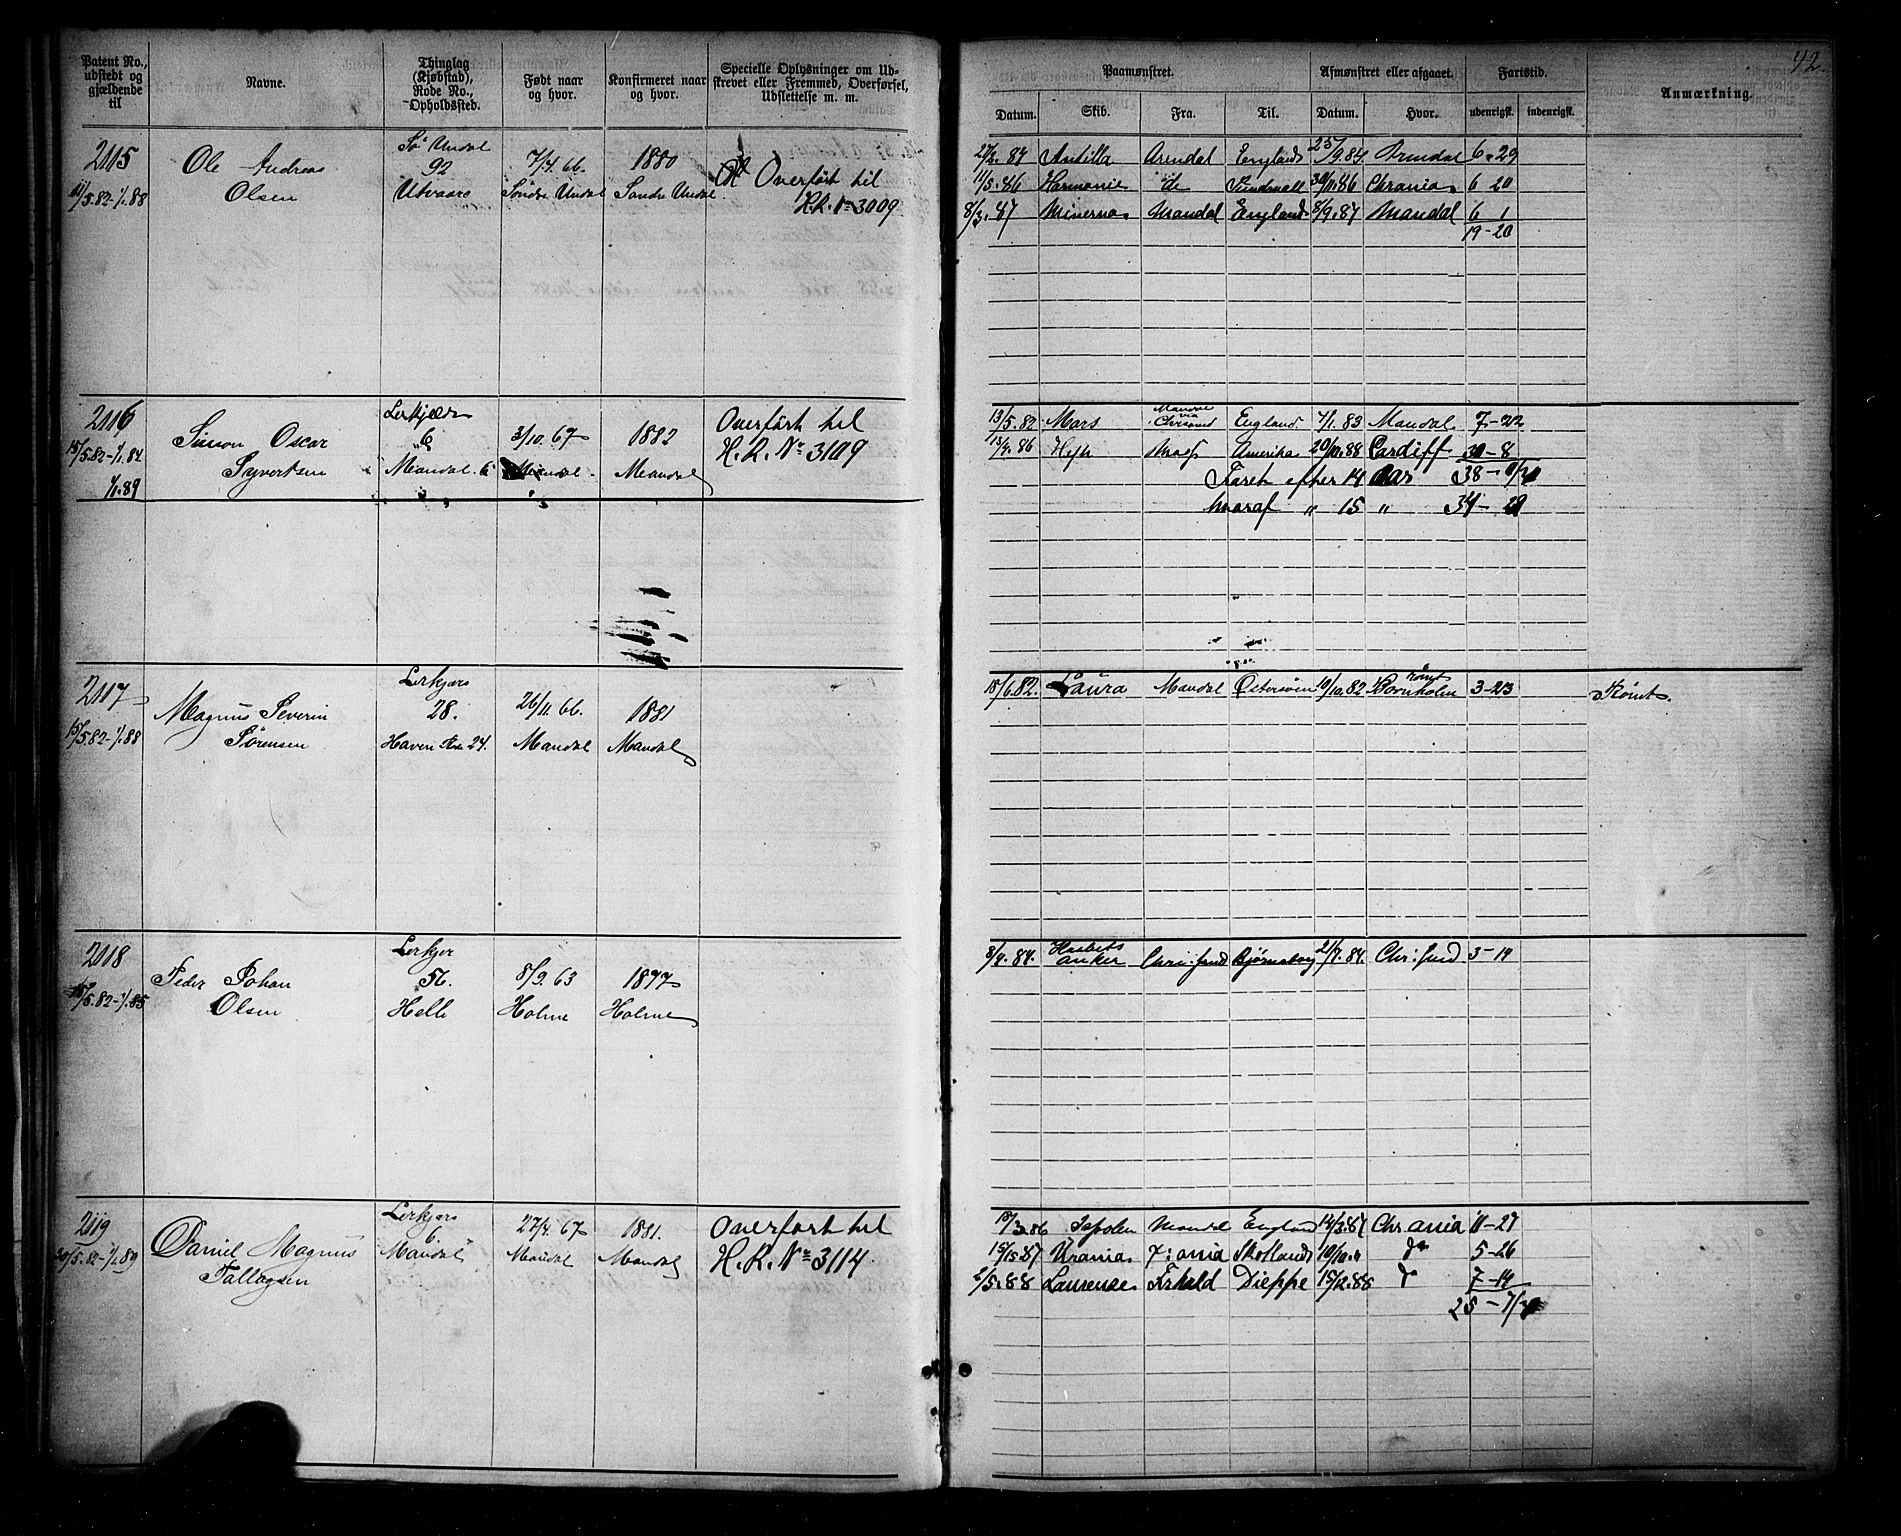 42.
Patent No., udstedt og gjældende til
Navne.
Thinglag (Kjøbstad), Rode No., Opholdssted.
Født naar og hvor.
Konfirmeret naar og hvor.
Specielle Oplysninger om Udskrevet eller Fremmed, Overførsel, Udslettelse m. m.
Paamønstret.
Afmønstret eller afgaaet.
Fartstid.
Anmærkning.
Datum. Skib. Fra. Til. Datum. Hvor. udenrigsk. indenrigsk.
2115
11/5.82-1/1.88
Ole Andreas
Olsen
Sø Undal
92
Utvaare
7/4.66.
Søndre Undal
1880
Søndre Undal.
Overført til
H.R. No 3009
27/2.84 Antilla Arendal England 25/9.84 Arendal 6-29
11/5.86 Harmonie do 30/11.86 Chrania 6 20
8/3.87 Minerva Mandal England 8/9.87 Mandal 6 1
19-20
2116
15/5.82-1/1.84
1/1.89
Simon Oscar
Syvertsen
Lerkjær
6
Mandal 6
3/10.67
Mandal.
1882
Mandal
Overført til
H.R. No 3109
13/5.82 Mars via Chrsand England 4/1.83 Mandal 7-22
13/9.86 Amerika 20/10.88 Cardiff 30-8
Faret efter 14 Aar 38-0/30
hvoraf " 15 " 34-29
2117
15/5.82-1/1.88
Magnus Severin
Sørensen
Lerkjær
28.
Haven Rode 24.
26/11.66.
Mandal
1881
Mandal
18/6.82. Laura Mandal Østersøen 10/10.82 rømt Bornholm 3-23 Rømt.
2118
15/5.82-1/1.85
Peder Johan
Olsen
Lerkjær
56.
Helle
8/9.63
Holme
1877
Holme
8/4.84. Haabets anker Chri.sand Bjørneborg 21/7.84. Chri.sand 3-14
2119
30/5.82-1/1.89
Daniel Magnus
Tallagsen
Lerkjær
6
Mandal
27/4.67
Mandal
1881.
Mandal
Overført til
H.R. No 3114
18/3.86 Mandal England 14/3.87 Chrania 11-27
15/5.87 Urania Skotland do 5-26
2/5.88 Laurenae Dieppe 15/12.88 do 7-14
25-7/30